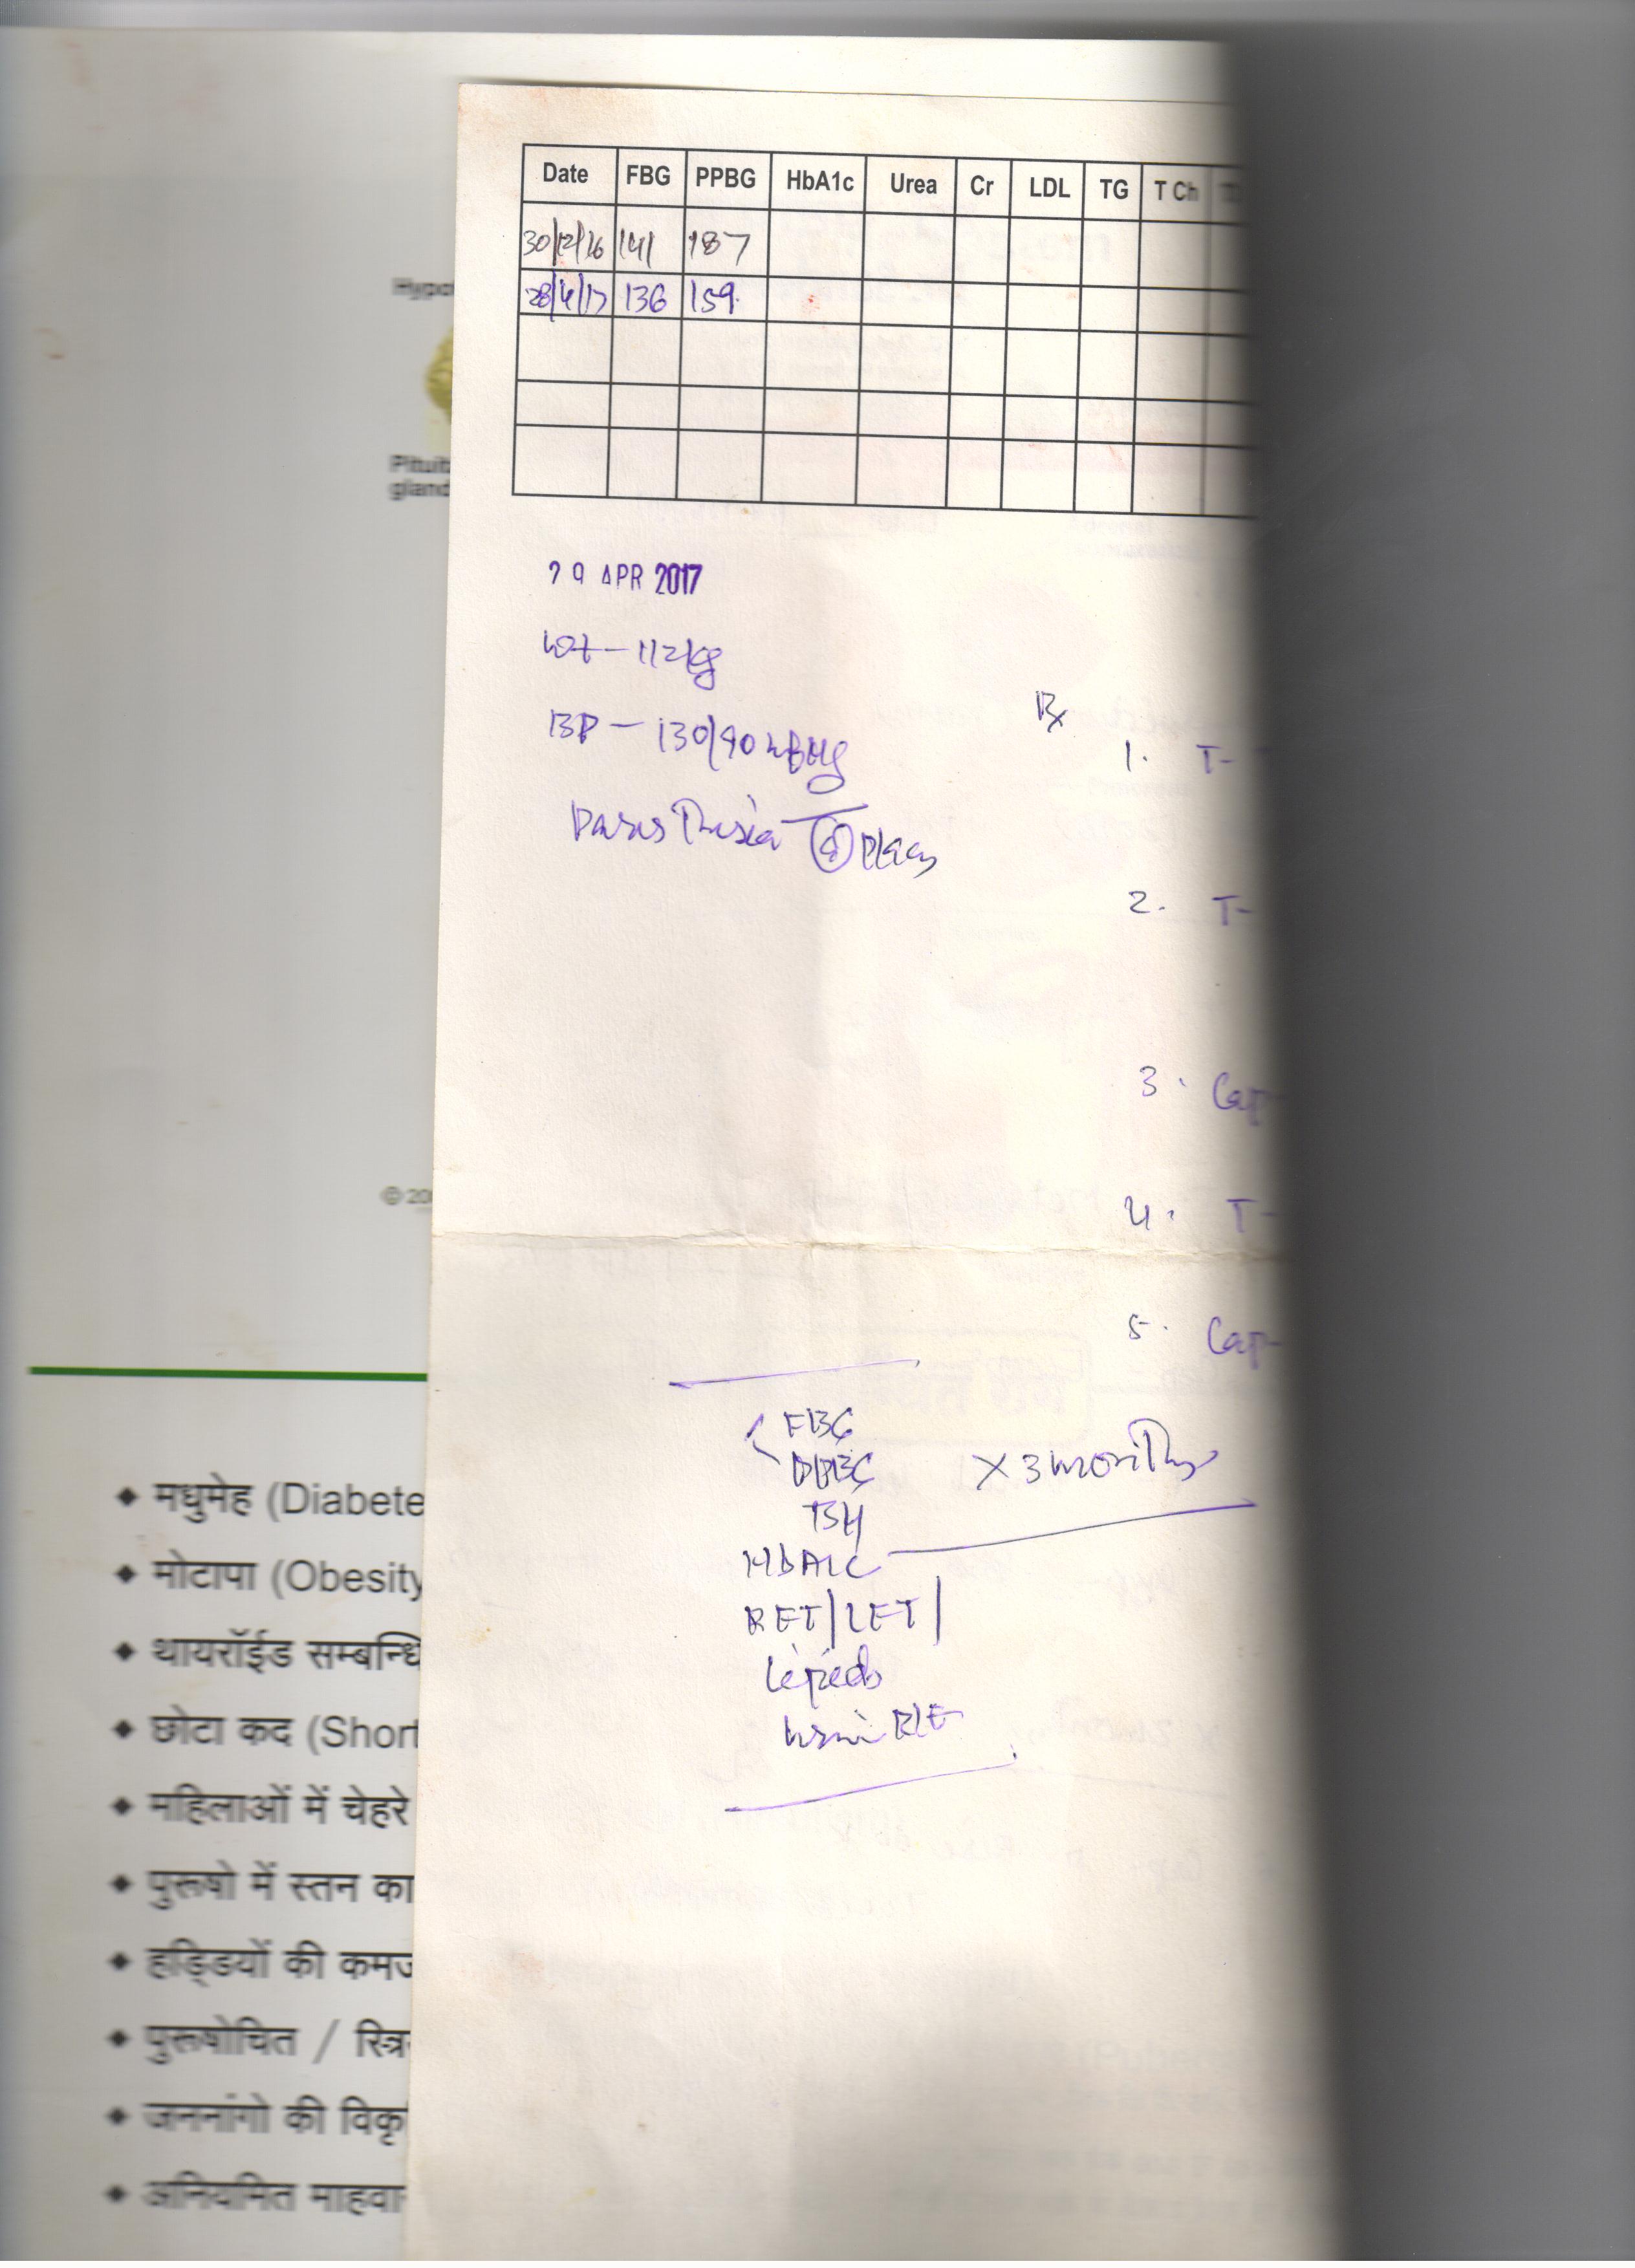 Date FBG PPBG HbA1c Urea Cr LDL TG T Ch
30/12/16 141 187
28/4/17 136 159
29 APR 2017
Wt - 112kg
BP - 130/90 mmHg
Rx
1. T-
2. T-
3. Cap-
4. T-
5. Cap-
FBG
PPBG x 3 months
TSH
HbA1C
RFT/LFT/
Lipids
Urine R/E
Hypo
Pituit
gland
© 20
◆ मधुमेह (Diabete
◆ मोटापा (Obesity
◆ थायरॉईड सम्बन्धि
◆ छोटा कद (Short
◆ महिलाओं में चेहरे
◆ पुरूषो में स्तन का
◆ हड्डियों की कमज
◆ पुरूषोचित / स्त्रि
◆ जननांगो की विकृ
◆ अनियमित माहवा